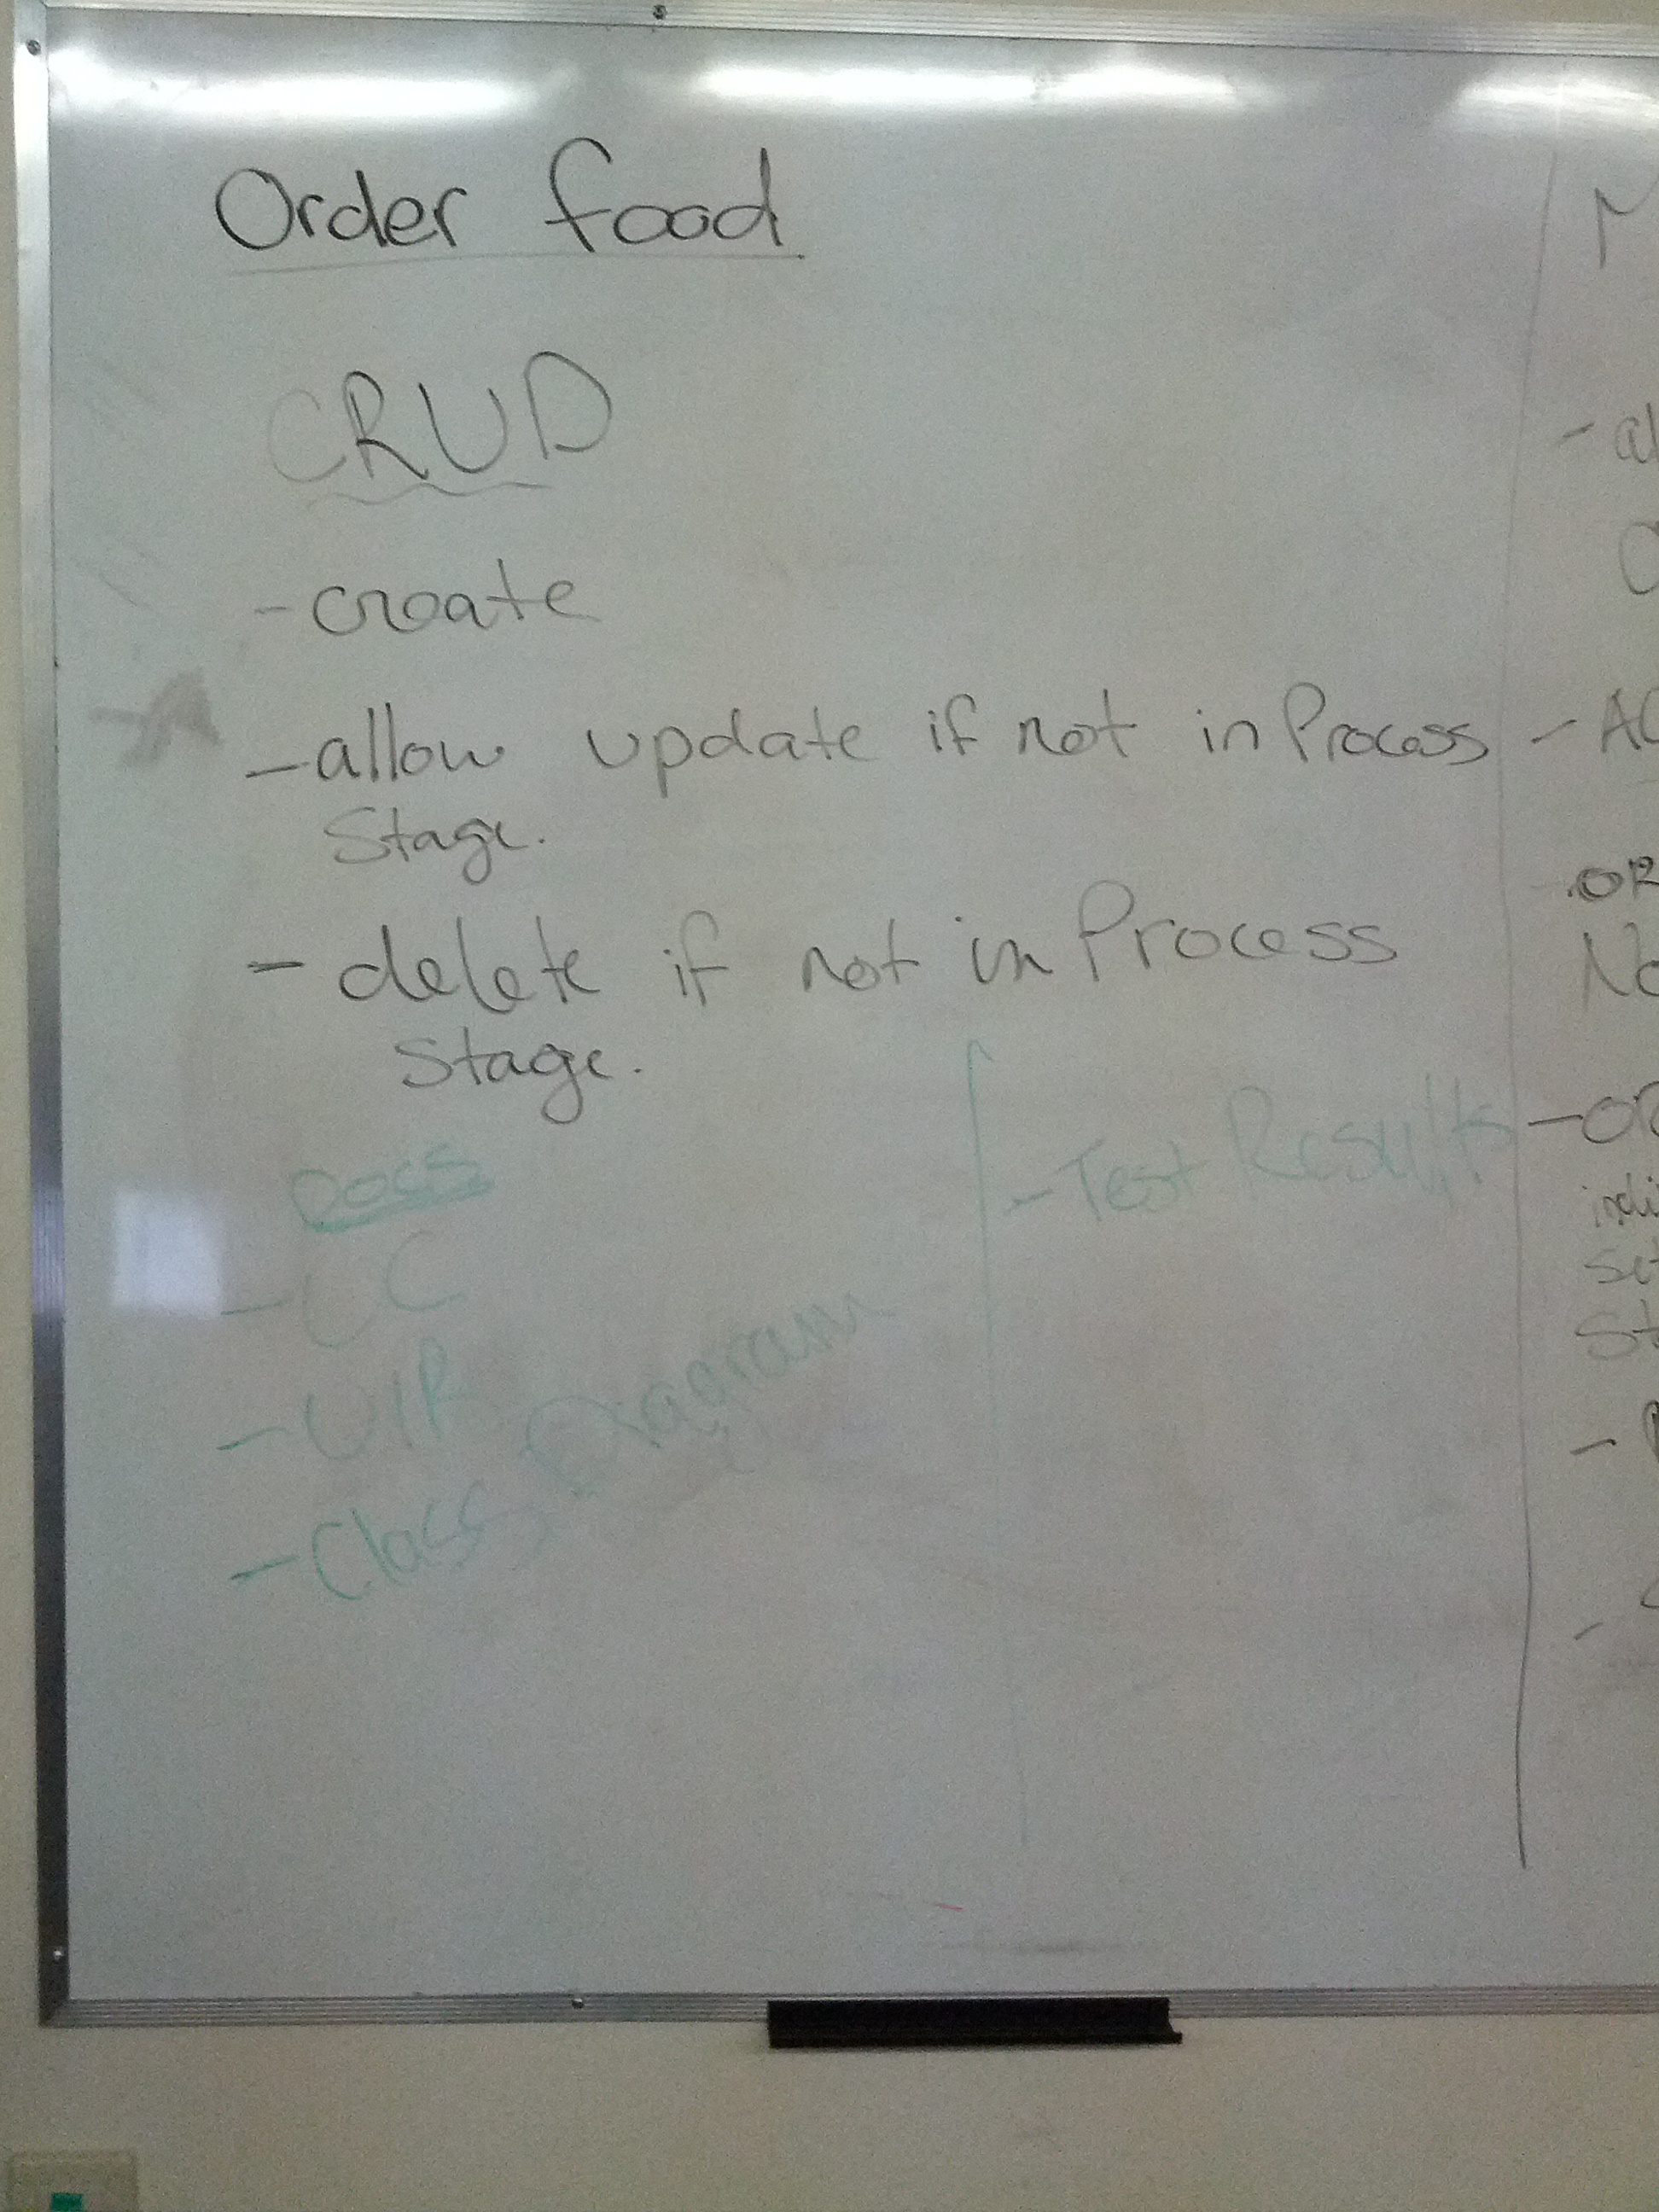 Order food
CRUD
- create
- allow update if not in Process
Stage.
- delete if not in Process
Stage.
Docs
- UC
- UIP
- Class Diagram
- Test Results
- AC
OR
No
- OR
indi
set
St